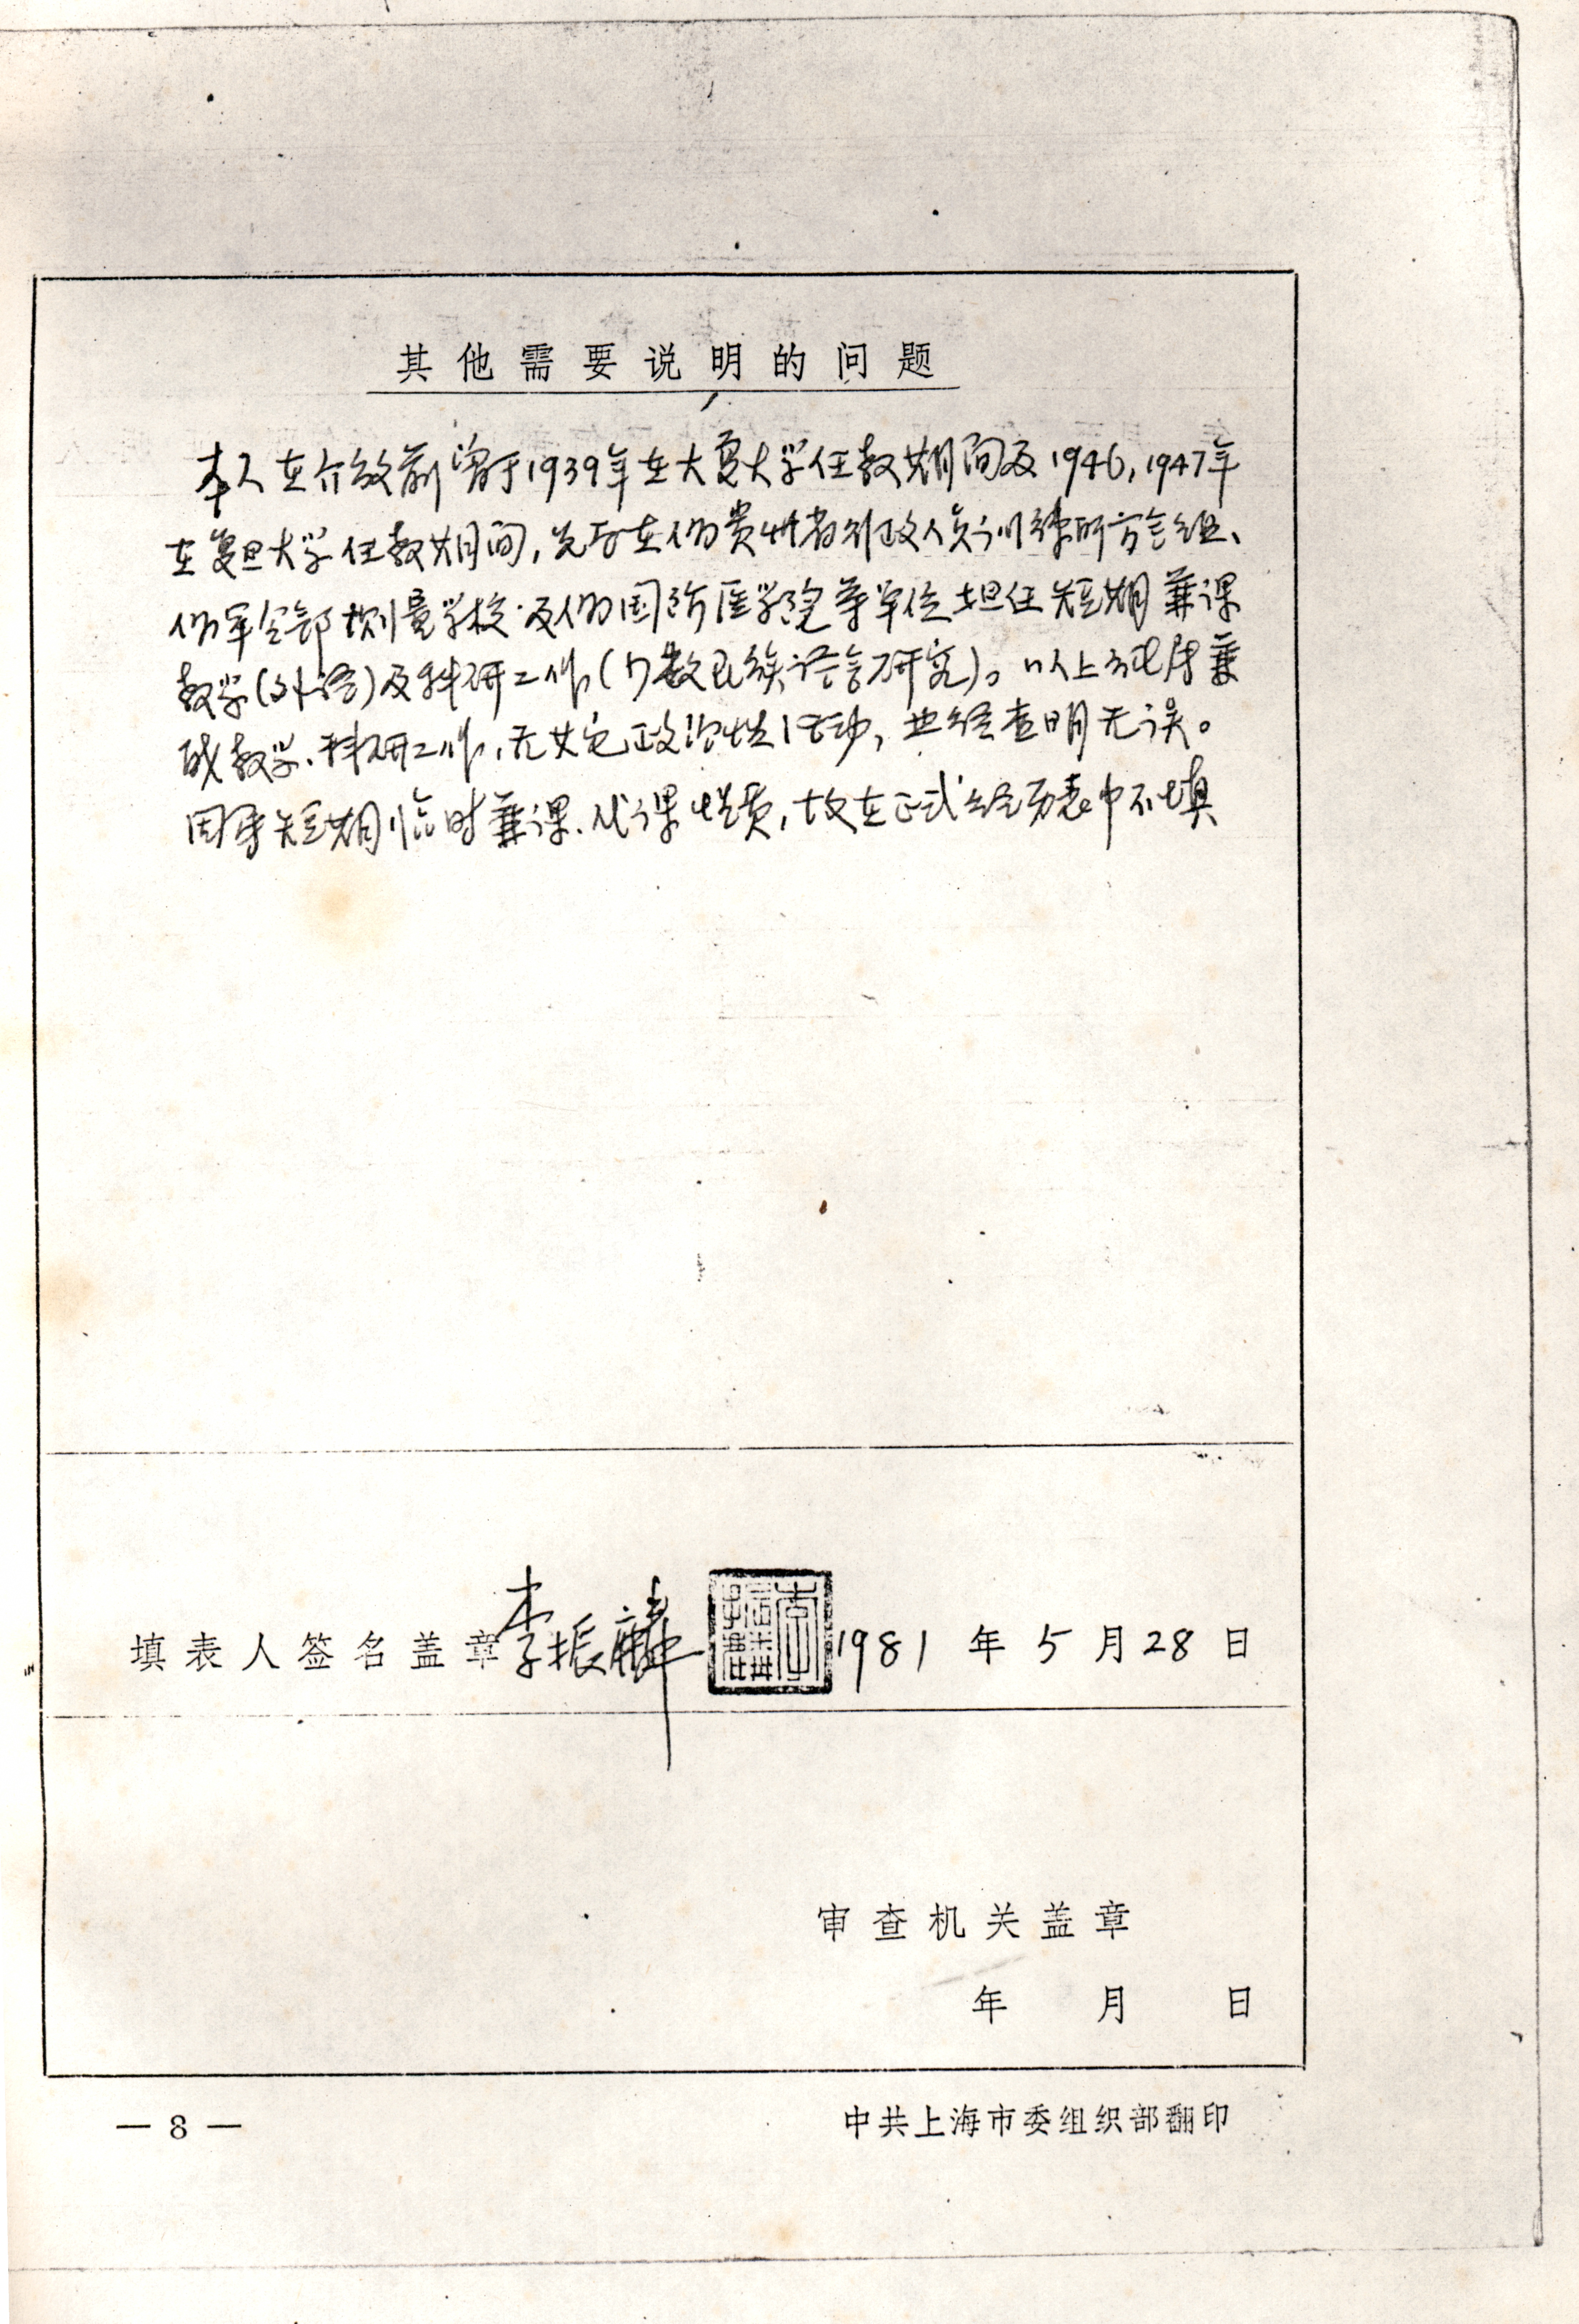 其他需要说明的问题
本人在介放前曾于1939年在大夏大学任教期间及1946,1947年
在复旦大学任教期间,先后在伪贵州省行政人员训练所方言组、
伪军令部测量学校及伪国防医学院等单位担任短期兼课
教学(外语)及科研工作(少数民族语言研究)。以上纯属兼
职教学、科研工作,无其它政治性活动,业经查明无误。
因系短期临时兼课、代课性质,故在正式经历表中不填
填表人签名盖章李振麟 李振麟 1981年5月28日
审查机关盖章
年 月 日
— 8 —
中共上海市委组织部翻印